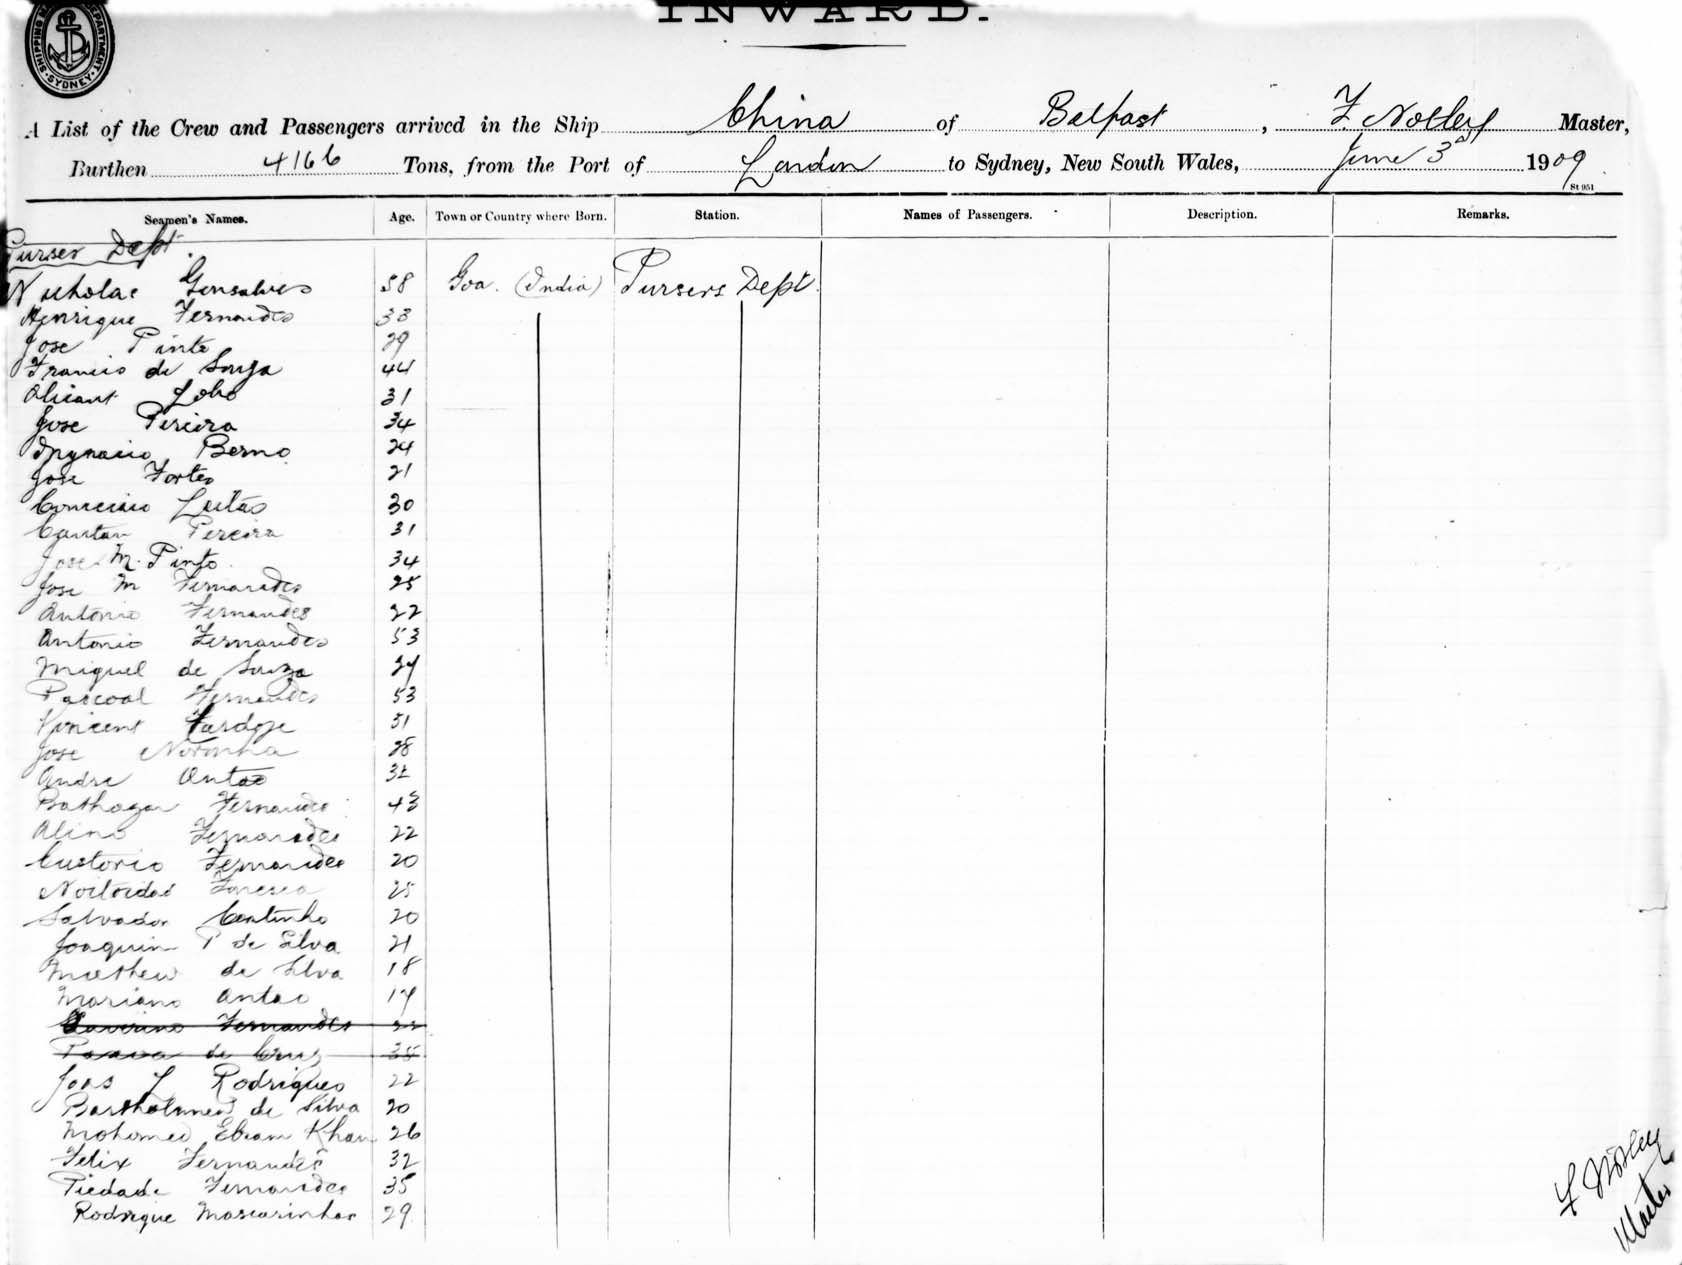 INWARD.
SHIPPING DEPARTMENT SYDNEY
A List of the Crew and Passengers arrived in the Ship China of Belfast, F. Notley Master,
Burthen 4166 Tons, from the Port of London to Sydney, New South Wales, June 3rd 1909
St 951
Seamen's Names. Age. Town or Country where Born. Station. Names of Passengers. Description. Remarks.
Purser Dept.
Nicholas Gonsalves 58 Goa. (India) Pursers Dept.
Henrique Fernandes 33
Jose Pinto 29
Francis de Souza 44
Lobo 31
Jose Pereira 34
Berno 24
Jose Fortes 21
Conceicao Leitao 30
Caitan Pereira 31
Jose M. Pinto 34
Jose M Fernandes 25
Antonio Fernandes 22
Antonio Fernandes 53
Miguel de Souza 24
Pascoal Fernandes 53
Vincent 51
Jose Noronha 28
Andre Antao 32
Fernandes 43
Fernandes 22
Custorio Fernandes 20
25
Salvador Coutinho 20
Joaquim P de Silva 21
Mathew de Silva 18
Mariano Antao 19
Fernandes 22
de Cruz 35
Joas F Rodrigues 22
Bartholomew de Silva 20
Mohomed Ebram Khan 26
Felix Fernandes 32
Piedade Fernandes 35
Rodrigue Mascarinhas 29
F Notley
Master